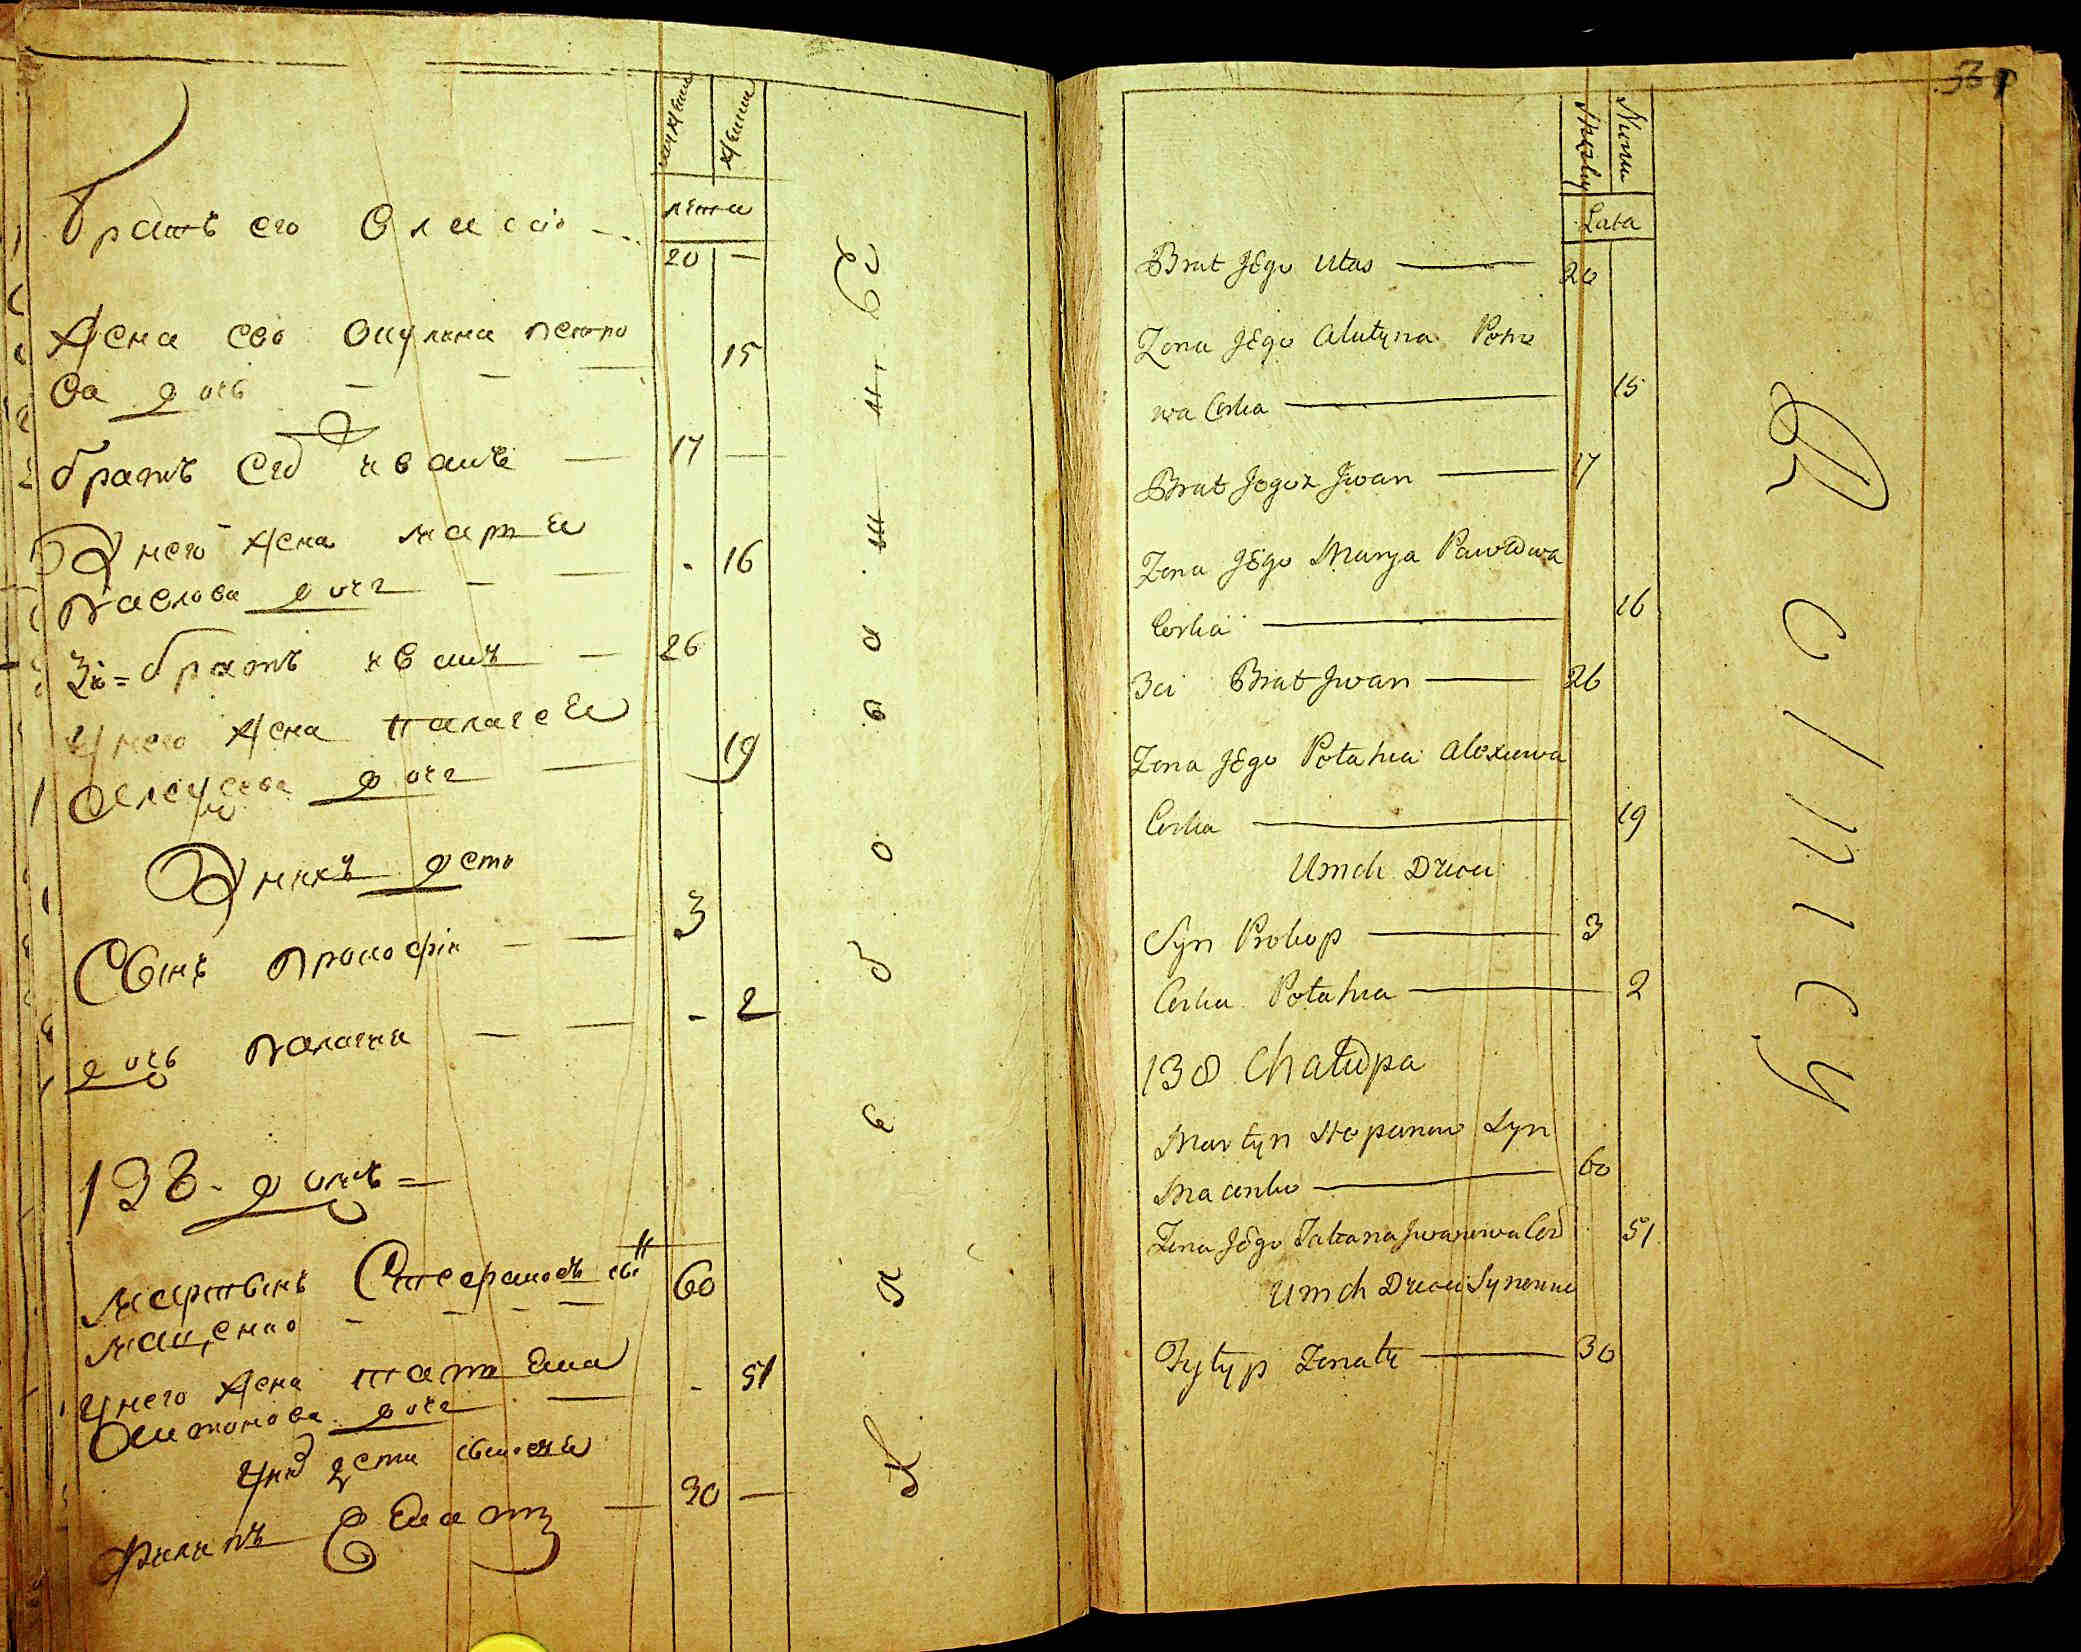 мужеска
женска
лета
братъ его Олисѣй 20 —
жена его Окулина петро
ва дочь 15
братъ его иванъ 17
У него жена мария
павлова дочь 16
3й братъ иванъ 26
у него жена палагея
дочь 19
У нихъ дети
Сынъ прокофiй 3
дочь палагея 2
138. домъ
мартынъ Степановъ сынъ
маценко 60
у него жена татияна
Антонова дочь 51
у них дети сыновья
филипъ Женатъ 30 —
361
Lata
Brat Jego 20
Zona Jego Petro
wa Corka 15
Brat Jegoz Jwan 17
Zona Jego Marya Pawlowa
Corka 16
3ci Brat Jwan 26
Zona Jego Potahia Alexiewa
Corka 19
Umch Dzieci
Syn Prokop 3
Corka Potahia 2
138 Chalupa
Martyn Stepanow Syn
Macenko 60
Zona Jego Tatiana Jwanowa Cor 51
Umch Dzieci Synowie
Fylyp Zonaty 30